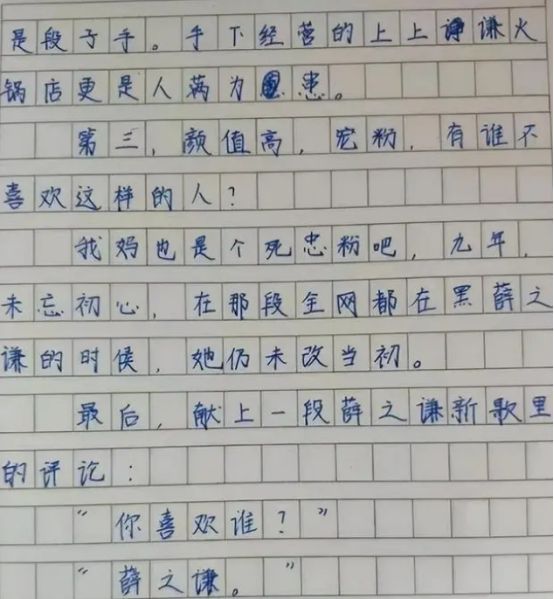 是段子手。手下经营的上上谦火
锅店更是人满为患。
第三，颜值高，宠粉，有谁不
喜欢这样的人？
我妈也是个死忠粉吧，九年，
未忘初心，在那段全网都在黑薛之
谦的时候，她仍未改当初。
最后，献上一段薛之谦新歌里
的评论：
“你喜欢谁？”
“薛之谦。”